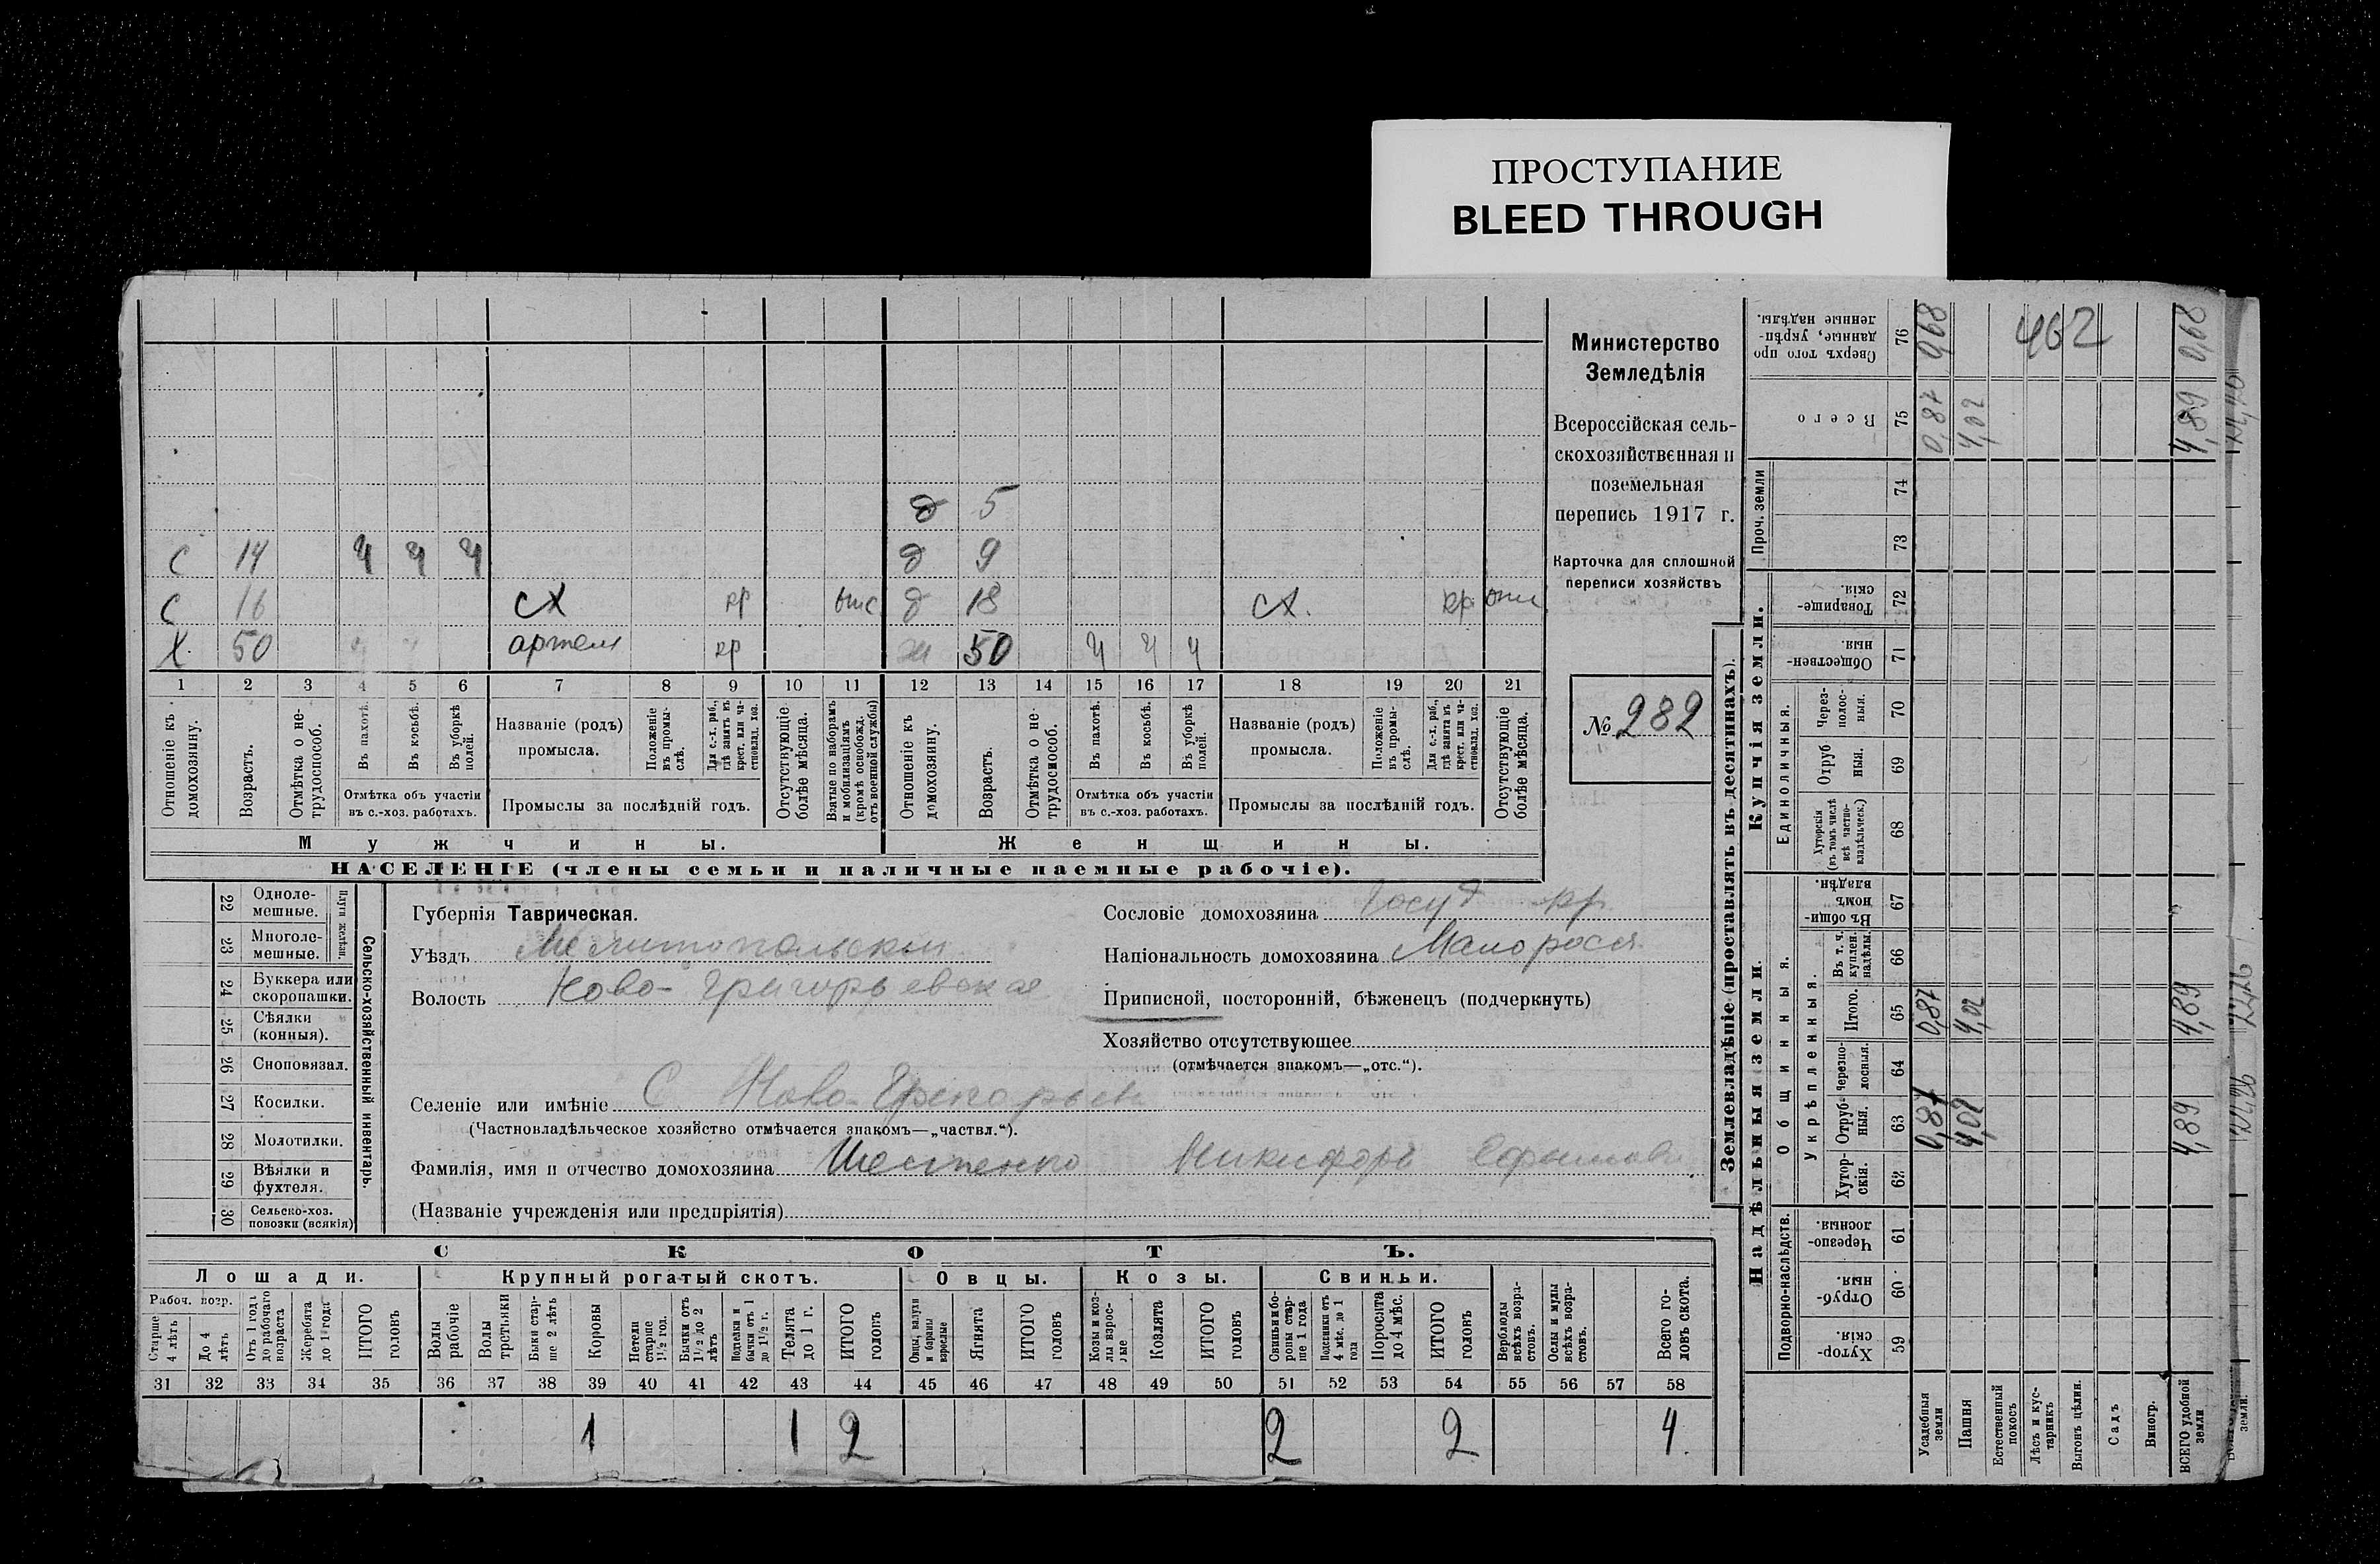 ПРОСТУПАНИЕ
BLEED THROUGH
Министерство
Земледѣлія
Всероссійская сель-
скохозяйственная и
поземельная
перепись 1917 г.
Карточка для сплошной
переписи хозяйствъ
№ 282
д 5
с 14 ч ч ч д 9
с 16 сх кр отс д 18 сх. кр отс
х 50 артель кр ж 50 ч ч ч
1 2 3 4 5 6 7 8 9 10 11 12 13 14 15 16 17 18 19 20 21
Отношеніе къ домохозяину.
Возрастъ.
Отмѣтка о не-трудоспособ.
Въ пахотѣ.
Въ косьбѣ.
Въ уборкѣ полей.
Отмѣтка объ участіи
въ с.-хоз. работахъ.
Названіе (родъ)
промысла.
Положеніе въ промы-слѣ.
Для с.-х. раб., гдѣ занятъ въ крест. или ча-стновлад. хоз.
Промыслы за послѣдній годъ.
Отсутствующіе болѣе мѣсяца.
Взятые по наборамъ и мобилизаціямъ (кромѣ освобожд. отъ военной службы)
Отношеніе къ домохозяину.
Возрастъ.
Отмѣтка о не-трудоспособ.
Въ пахотѣ.
Въ косьбѣ.
Въ уборкѣ полей.
Отмѣтка объ участіи
въ с.-хоз. работахъ.
Названіе (родъ)
промысла.
Положеніе въ промы-слѣ.
Для с.-х. раб., гдѣ занята въ крест. или ча-стновлад. хоз.
Промыслы за послѣдній годъ.
Отсутствующіе болѣе мѣсяца.
Мужчины. Женщины.
НАСЕЛЕНІЕ (члены семьи и наличные наемные рабочіе).
Сельско-хозяйственный инвентарь.
Плуги желѣзн.
22 Одноле-мешные.
23 Многоле-мешные.
24 Буккера или скоропашки.
25 Сѣялки (конныя).
26 Сноповязал.
27 Косилки.
28 Молотилки.
29 Вѣялки и фухтеля.
30 Сельско-хоз. повозки (всякія)
Губернія Таврическая.
Уѣздъ Мелитопольскій
Волость Ново-Григорьевская
Сословіе домохозяина Госуд кр.
Національность домохозяина Малоросс
Приписной, посторонній, бѣженецъ (подчеркнуть)
Хозяйство отсутствующее
(отмѣчается знакомъ—„отс.“).
Селеніе или имѣніе С. Ново-Григорьев
(Частновладѣльческое хозяйство отмѣчается знакомъ—„частвл.“).
Фамилія, имя и отчество домохозяина Шестенко Никифоръ Ефимовъ
(Названіе учрежденія или предпріятія)
СКОТЪ.
Лошади. Крупный рогатый скотъ. Овцы. Козы. Свиньи.
Рабоч. возр.
Старше 4 лѣтъ
До 4 лѣтъ
Отъ 1 года до рабочаго возраста
Жеребята до 1 года
ИТОГО головъ
Волы рабочіе
Волы третьяки
Быки стар-ше 2 лѣтъ
Коровы
Нетели старше 1½ год.
Бычки отъ 1½ до 2 лѣтъ
Подтелки и бычки отъ 1 до 1½ г.
Телята до 1 г.
ИТОГО головъ
Овцы, валухи и бараны взрослые
Ягнята
ИТОГО головъ
Козы и коз-лы взрос-лые
Козлята
ИТОГО головъ
Свиньи и бо-ровы стар-ше 1 года
Подсвинки отъ 4 мѣс. до 1 года
Поросята до 4 мѣс.
ИТОГО головъ
Верблюды всѣхъ возра-стовъ.
Ослы и мулы всѣхъ возра-стовъ.
Всего го-ловъ скота.
31 32 33 34 35 36 37 38 39 40 41 42 43 44 45 46 47 48 49 50 51 52 53 54 55 56 57 58
1 1 2 2 2 4.
Землевладѣніе (проставлять въ десятинахъ).
Надѣльныя земли. Купчія земли.
Подворно-наслѣдств.
Общинныя.
Укрѣпленныя.
Единоличныя.
Проч. земли
Хутор-скія. 59
Отруб-ныя. 60
Черезпо-лосныя. 61
Хутор-скія. 62
Отруб-ныя. 63 0,87 4,02 4,89
Черезпо-лосныя. 64
Итого. 65 0,87 4,02 4,89
Въ т. ч. куплен. надѣлы. 66
Въ общи-номъ владѣн. 67
Хуторскія (въ томъ числѣ всѣ частно-владѣльческ.) 68
Отруб ныя. 69
Через-полос-ныя. 70
Обществен-ныя. 71
Товарище-скія. 72
73
74
Всего 75 0,87 4,02 4,89
Сверхъ того про данные, укрѣп-ленные надѣлы. 76 0,68 402 0,68
Усадебныя земли
Пашня
Естественный покосъ
Лѣсъ и кус-тарникъ
Выгонъ цѣлин.
Садъ
Виногр.
ВСЕГО удобной земли
земли.